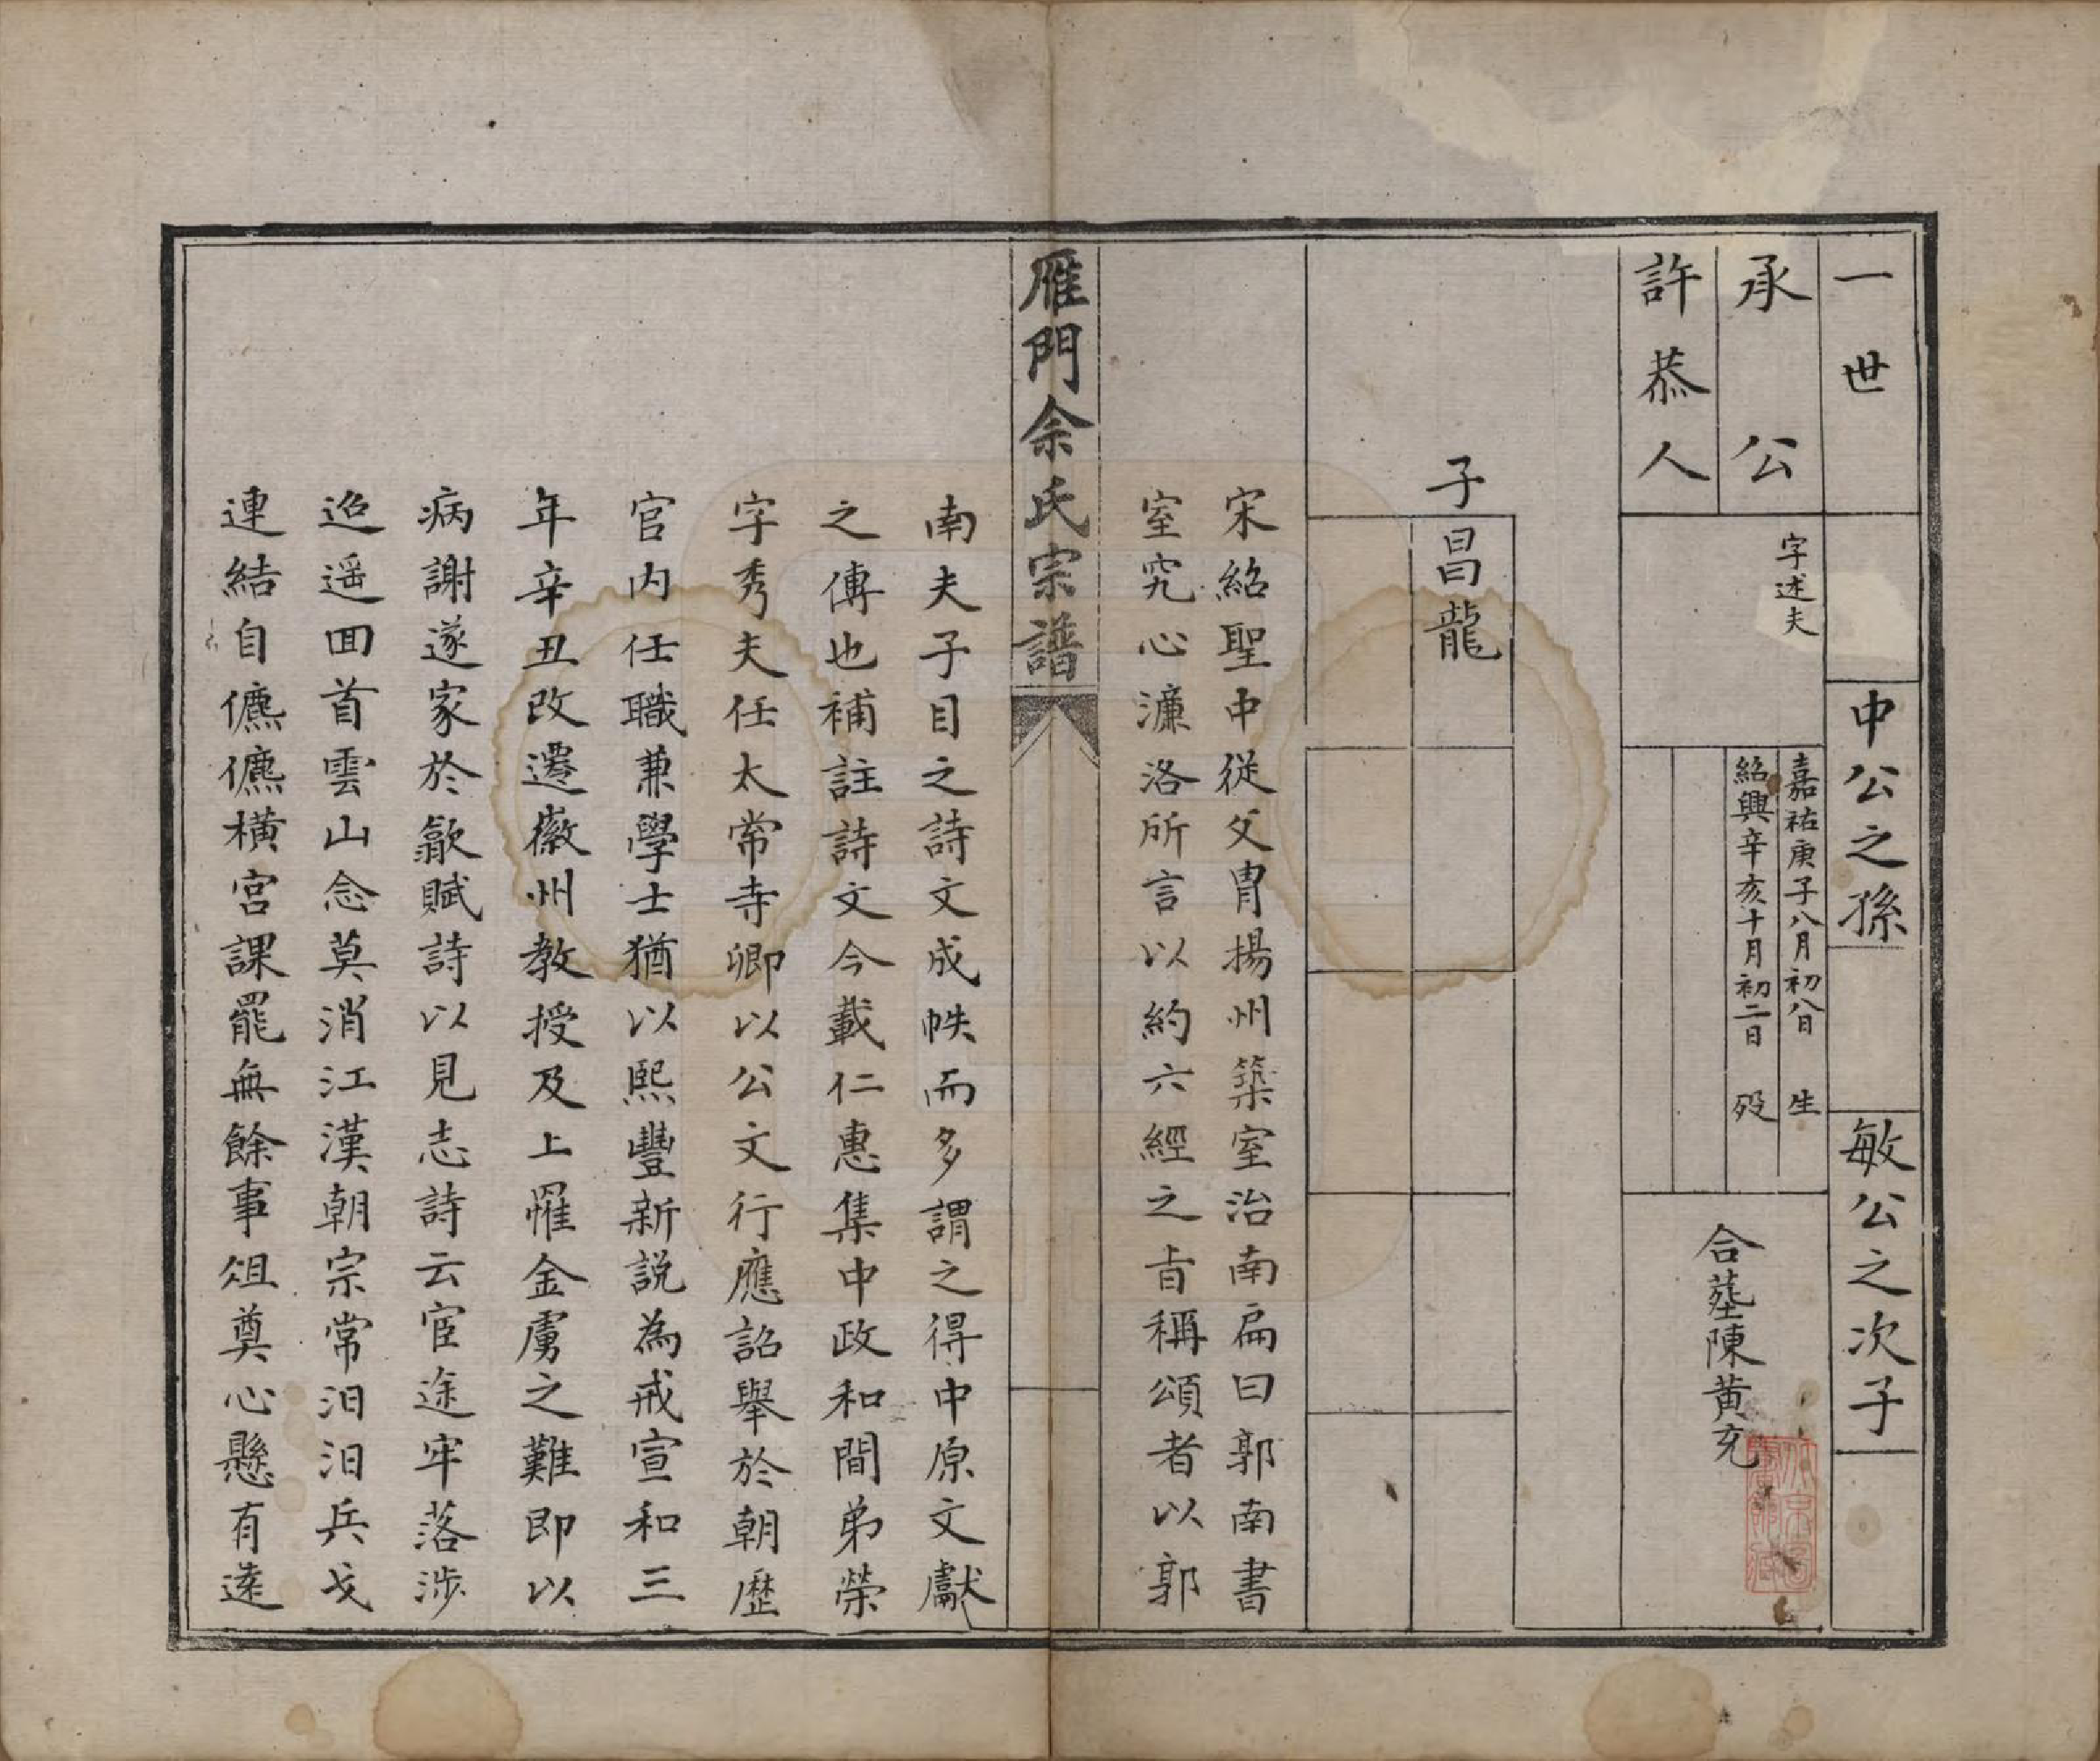 一世
中公之孫
敏公之次子
承公
字述夫
嘉祐庚子八月初八日生
紹興辛亥十月初二日歿
許恭人
合塟陳黄充
子昌龍
宋紹聖中從父胄揚州築室治南扁曰郭南書
室究心濂洛所言以約六經之㫖稱頌者以郭
雁門佘氏宗譜
南夫子目之詩文成帙而多謂之得中原文獻
之傳也補註詩文今載仁惠集中政和間弟榮
字秀夫任太常寺卿以公文行應詔舉於朝歷
官内任職兼學士猶以熙豐新説為戒宣和三
年辛丑改遷徽州教授及上罹金虜之難即以
病謝遂家於歙賦詩以見志詩云宦途牢落涉
迢遥囬首雲山念莫消江漢朝宗常汨汨兵戈
連結自儦儦横宮課罷無餘事俎奠心懸有逺